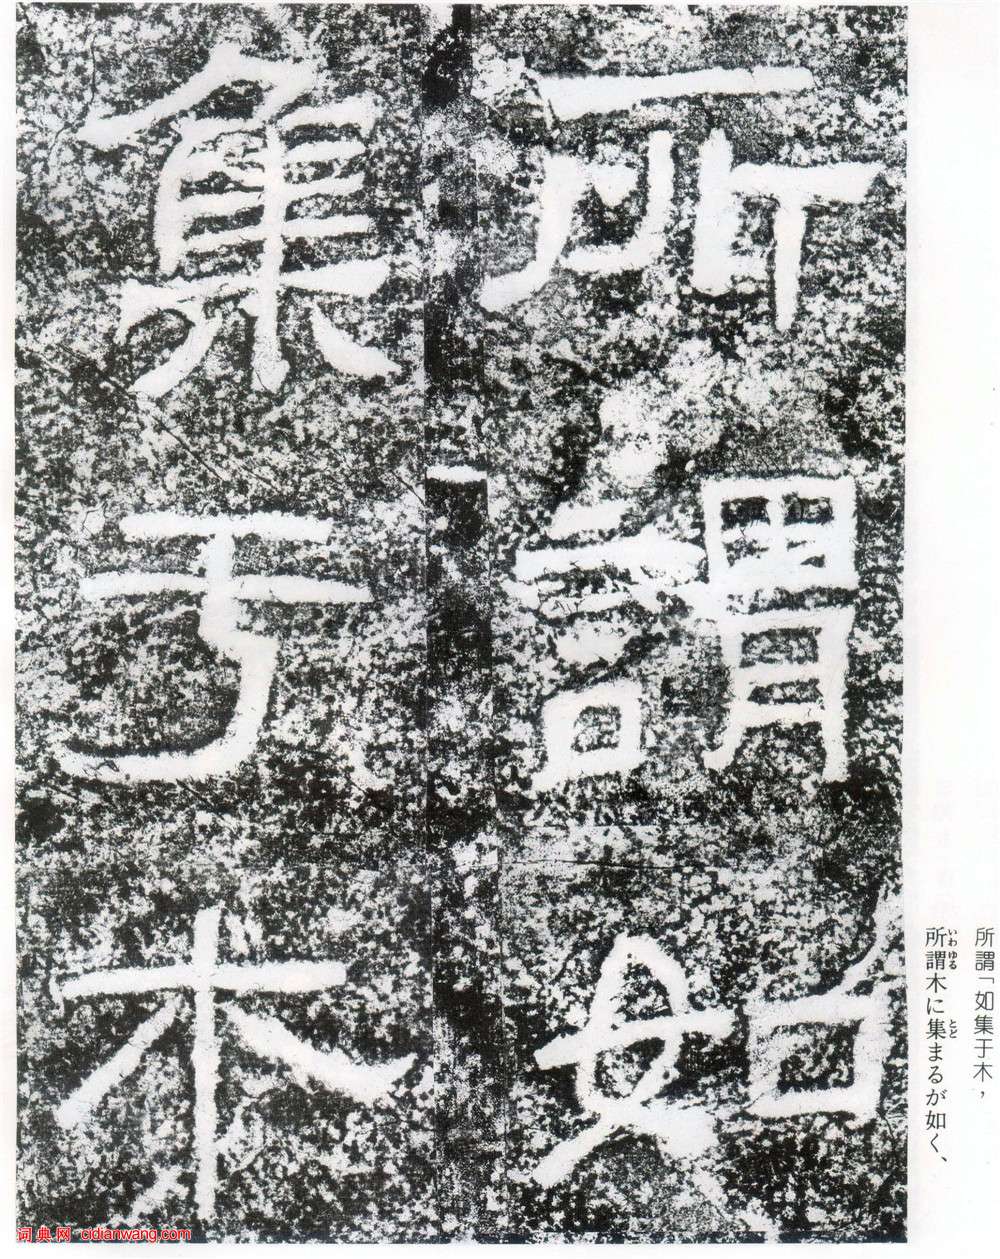 所謂如
集于木
所謂「如集于木，
所謂木に集まるが如く、
いわゆる
とど
词典网 cidianwang.com